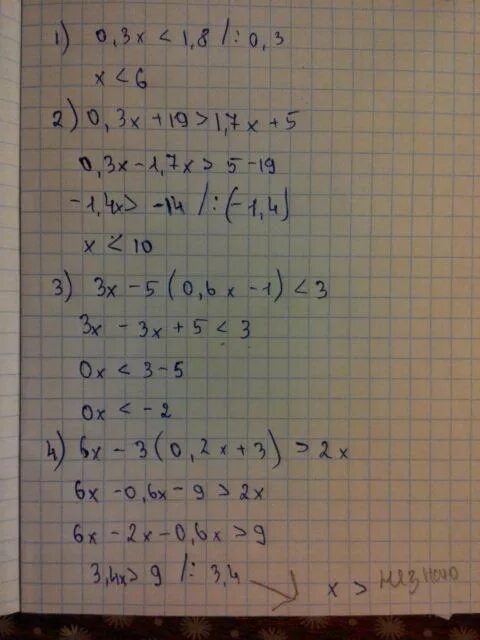 1) 0,3x < 1,8 /:0,3
x < 6
2) 0,3x + 19 > 1,7x + 5
0,3x - 1,7x > 5 - 19
-1,4x > -14 /:(-1,4)
x < 10
3) 3x - 5 (0,6x - 1) < 3
3x - 3x + 5 < 3
0x < 3 - 5
0x < - 2
4) 6x - 3 (0,2x + 3) > 2x
6x - 0,6x - 9 > 2x
6x - 2x - 0,6x > 9
3,4x > 9 /: 3,4
x >